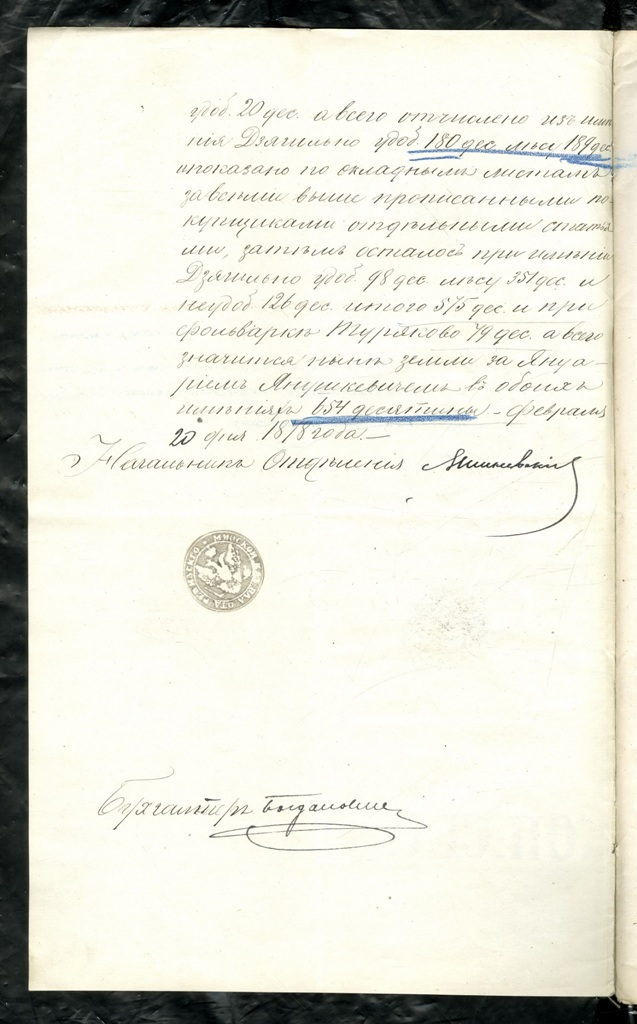 удоб. 20 дес. а всего отчислено изъ имѣ
нія Дзягильно удоб. 180 дес. лѣсу 189 дес
и показано по окладнымъ листамъ
за всѣми выше прописанными по
купщиками отдѣльными статья
ми, затѣмъ осталось при имѣніи
Дзягильно удоб. 98 дес. лѣсу 351 дес. и
неудоб. 126 дес. итого 575 дес. и при
фольваркѣ Туряково 79 дес. а всего
значится нынѣ земли за Януа-
ріемъ Янушкевичемъ въ обоихъ
имѣніяхъ 654 десятины – Февраля
20 дня 1878 года. –
Начальникъ Отдѣленія
МИНСКОЙ
Бухгалтеръ Богданович